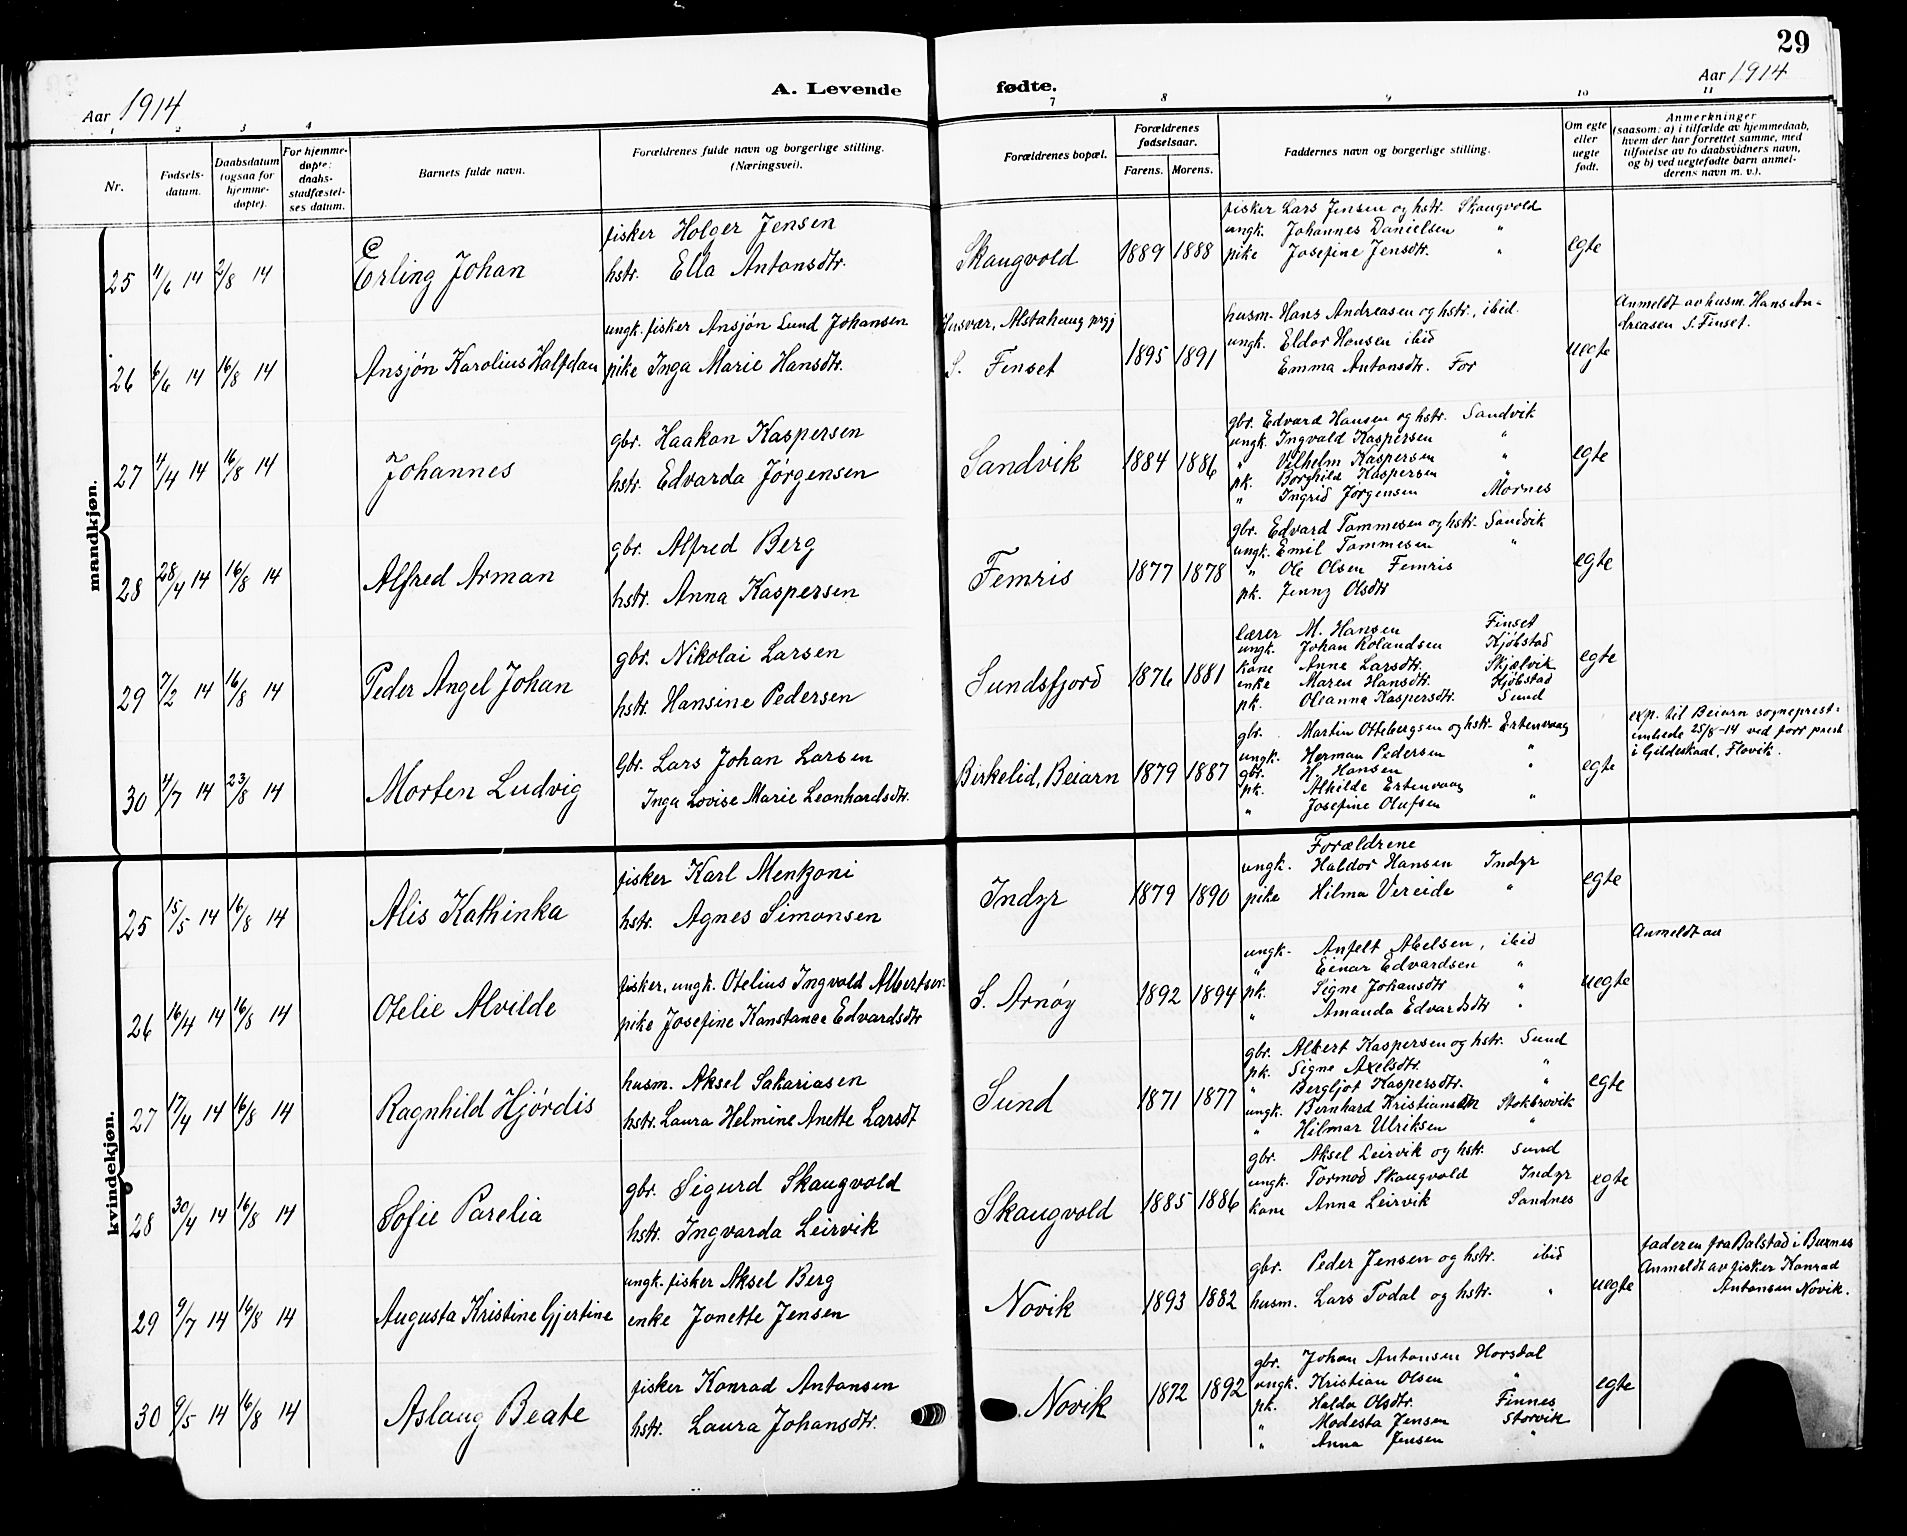 29
Aar 1914
A. Levende
fødte.
Aar 1914
1 2 3 4 7 8 9 10 11
Nr.
Fødsels-
datum.
Daabsdatum
(ogsaa for
hjemme-
døpte).
For hjemme-
døpte:
daabs-
stadfæstel-
ses datum.
Barnets fulde navn.
Forældrenes fulde navn og borgerlige stilling.
(Næringsvei).
Forældrenes bopæl.
Forældrenes
fødselsaar.
Farens. Morens.
Faddernes navn og borgerlige stilling.
Om egte
eller
uegte
født.
Anmerkninger
(saasom: a) i tilfælde av hjemmedaab,
hvem der har forrettet samme, med
tilføielse av to daabsvidners navn,
og b) ved uegtefødte barn anmel-
derens navn m. v.).
mandkjøn.
25 11/6 14 2/8 14
Erling Johan
fisker Holger Jensen
hstr. Ella Antonsdtr.
Skaugvold 1889 1888
fisker Lars Jensen og hstr. Skaugvold
ungk. Johannes Danielsen "
pike Josefine Jensdtr. "
egte
26 6/6 14 16/8 14
Ansjón Karolius Halfdan
ungk. fisker Ansjón Lund Johansen
pike Inga Marie Hansdtr.
Husvær, Alstahaug prgj
S. Finset 1895 1891
husm. Hans Andreasen og hstr., ibid.
ungk. Eldor Hansen ibid
Emma Antonsdtr. For
uegte
Anmeldt av husm. Hans An-
dreasen S. Finset.
27 11/4 14 16/8 14
Johannes
gbr. Haakon Kaspersen
hstr. Edvarda Jørgensen
Sandvik 1884 1886
gbr. Edvard Hansen og hstr. Sandvik
ungk. Ingvald Kaspersen "
" Vilhelm Kaspersen "
pk. Borghild Kaspersen "
" Ingrid Jørgensen Mornes
egte
28 28/4 14 16/8 14
Alfred Arman
gbr. Alfred Berg
hstr. Anna Kaspersen
Femris 1877 1878
gbr. Edvard Tommesen og hstr. Sandvik
ungk. Emil Tommesen "
" Ole Olsen Femris
pk. Jenny Olsdtr
egte
29 7/2 14 16/8 14
Peder Angel Johan
gbr. Nikolai Larsen
hstr. Hansine Pedersen
Sundsfjord 1876 1881
lærer M. Hansen Finset
ungk. Johan Rolandsen Kjøbstad
kone Anna Larsdtr. Skjælvik
enke Maren Hansdtr. Kjøbstad
pk. Olianna Kaspersdtr. Sund
egte
30 4/7 14 23/8 14
Morten Ludvig
Gbr. Lars Johan Larsen
Inga Lovise Marie Leonhardsdtr.
Birkelid, Beiarn 1879 1887
gbr. Martin Ottebergsen og hstr. Ertenvaag
ungk. Herman Pedersen "
gbr. H. Hansen "
pk. Alhilde Ertenvaag
" Josefine Olufsen "
egte
exp. til Beiarn sogneprest-
embede 25/8-14 ved forr prest
i Gildeskaal, Flovik.
kvindekjøn.
25 15/5 14 16/8 14
Alis Kathinka
fisker Karl Mentzoni
hstr. Agnes Simonsen
Indyr 1879 1890
Forældrene
ungk. Haldor Hansen Indyr
pike Hilma Vereide "
egte
26 16/4 14 16/8 14
Otelie Alvilde
fisker, ungk. Otelius Ingvald Albertsen
pike Josefine Konstance Edvardsdtr
S. Arnøy 1892 1894
ungk. Anfelt Abelsen, ibid
" Einar Edvardsen "
pk. Signe Johansdtr "
" Amanda Edvardsdtr "
uegte
Anmeldt av
27 17/4 14 16/8 14
Ragnhild Hjórdis
husm. Aksel Sakariasen
hstr. Laura Helmine Anette Larsdt
Sund 1871 1877
gbr. Albert Kaspersen og hstr. Sund
pk. Signe Axelsdtr. "
" Bergljot Kaspersdtr. "
ungk. Bernhard Kristiansen Stokbrovik
" Hilmar Ulriksen "
egte
28 30/4 14 16/8 14
Sofie Parelia
gbr. Sigurd Skaugvold
hstr. Ingvarda Leirvik
Skaugvold 1885 1886
gbr. Aksel Leirvik og hstr. Sund
ungk. Tormod Skaugvold Indyr
kone Anna Leirvik Sandnes
egte
29 9/7 14 16/8 14
Augusta Kristine Gjertine
ungk. fisker Aksel Berg
enke Jonette Jensen
Novik 1893 1882
gbr. Peder Jensen og hstr. ibid
husm. Lars Todal og hstr. "
uegte
faderen fra Balstad i Buxnes
Anmeldt av fisker Konrad
Antonsen Novik.
30 9/5 14 16/8 14
Aslaug Beate
fisker Konrad Antonsen
hstr. Laura Johansdtr.
Novik 1872 1892
gbr. Johan Antonsen Horsdal
ungk. Kristian Olsen "
pk. Halda Olsdtr. Finnes
" Modesta Jensen Storvik
" Anna Jensen "
egte